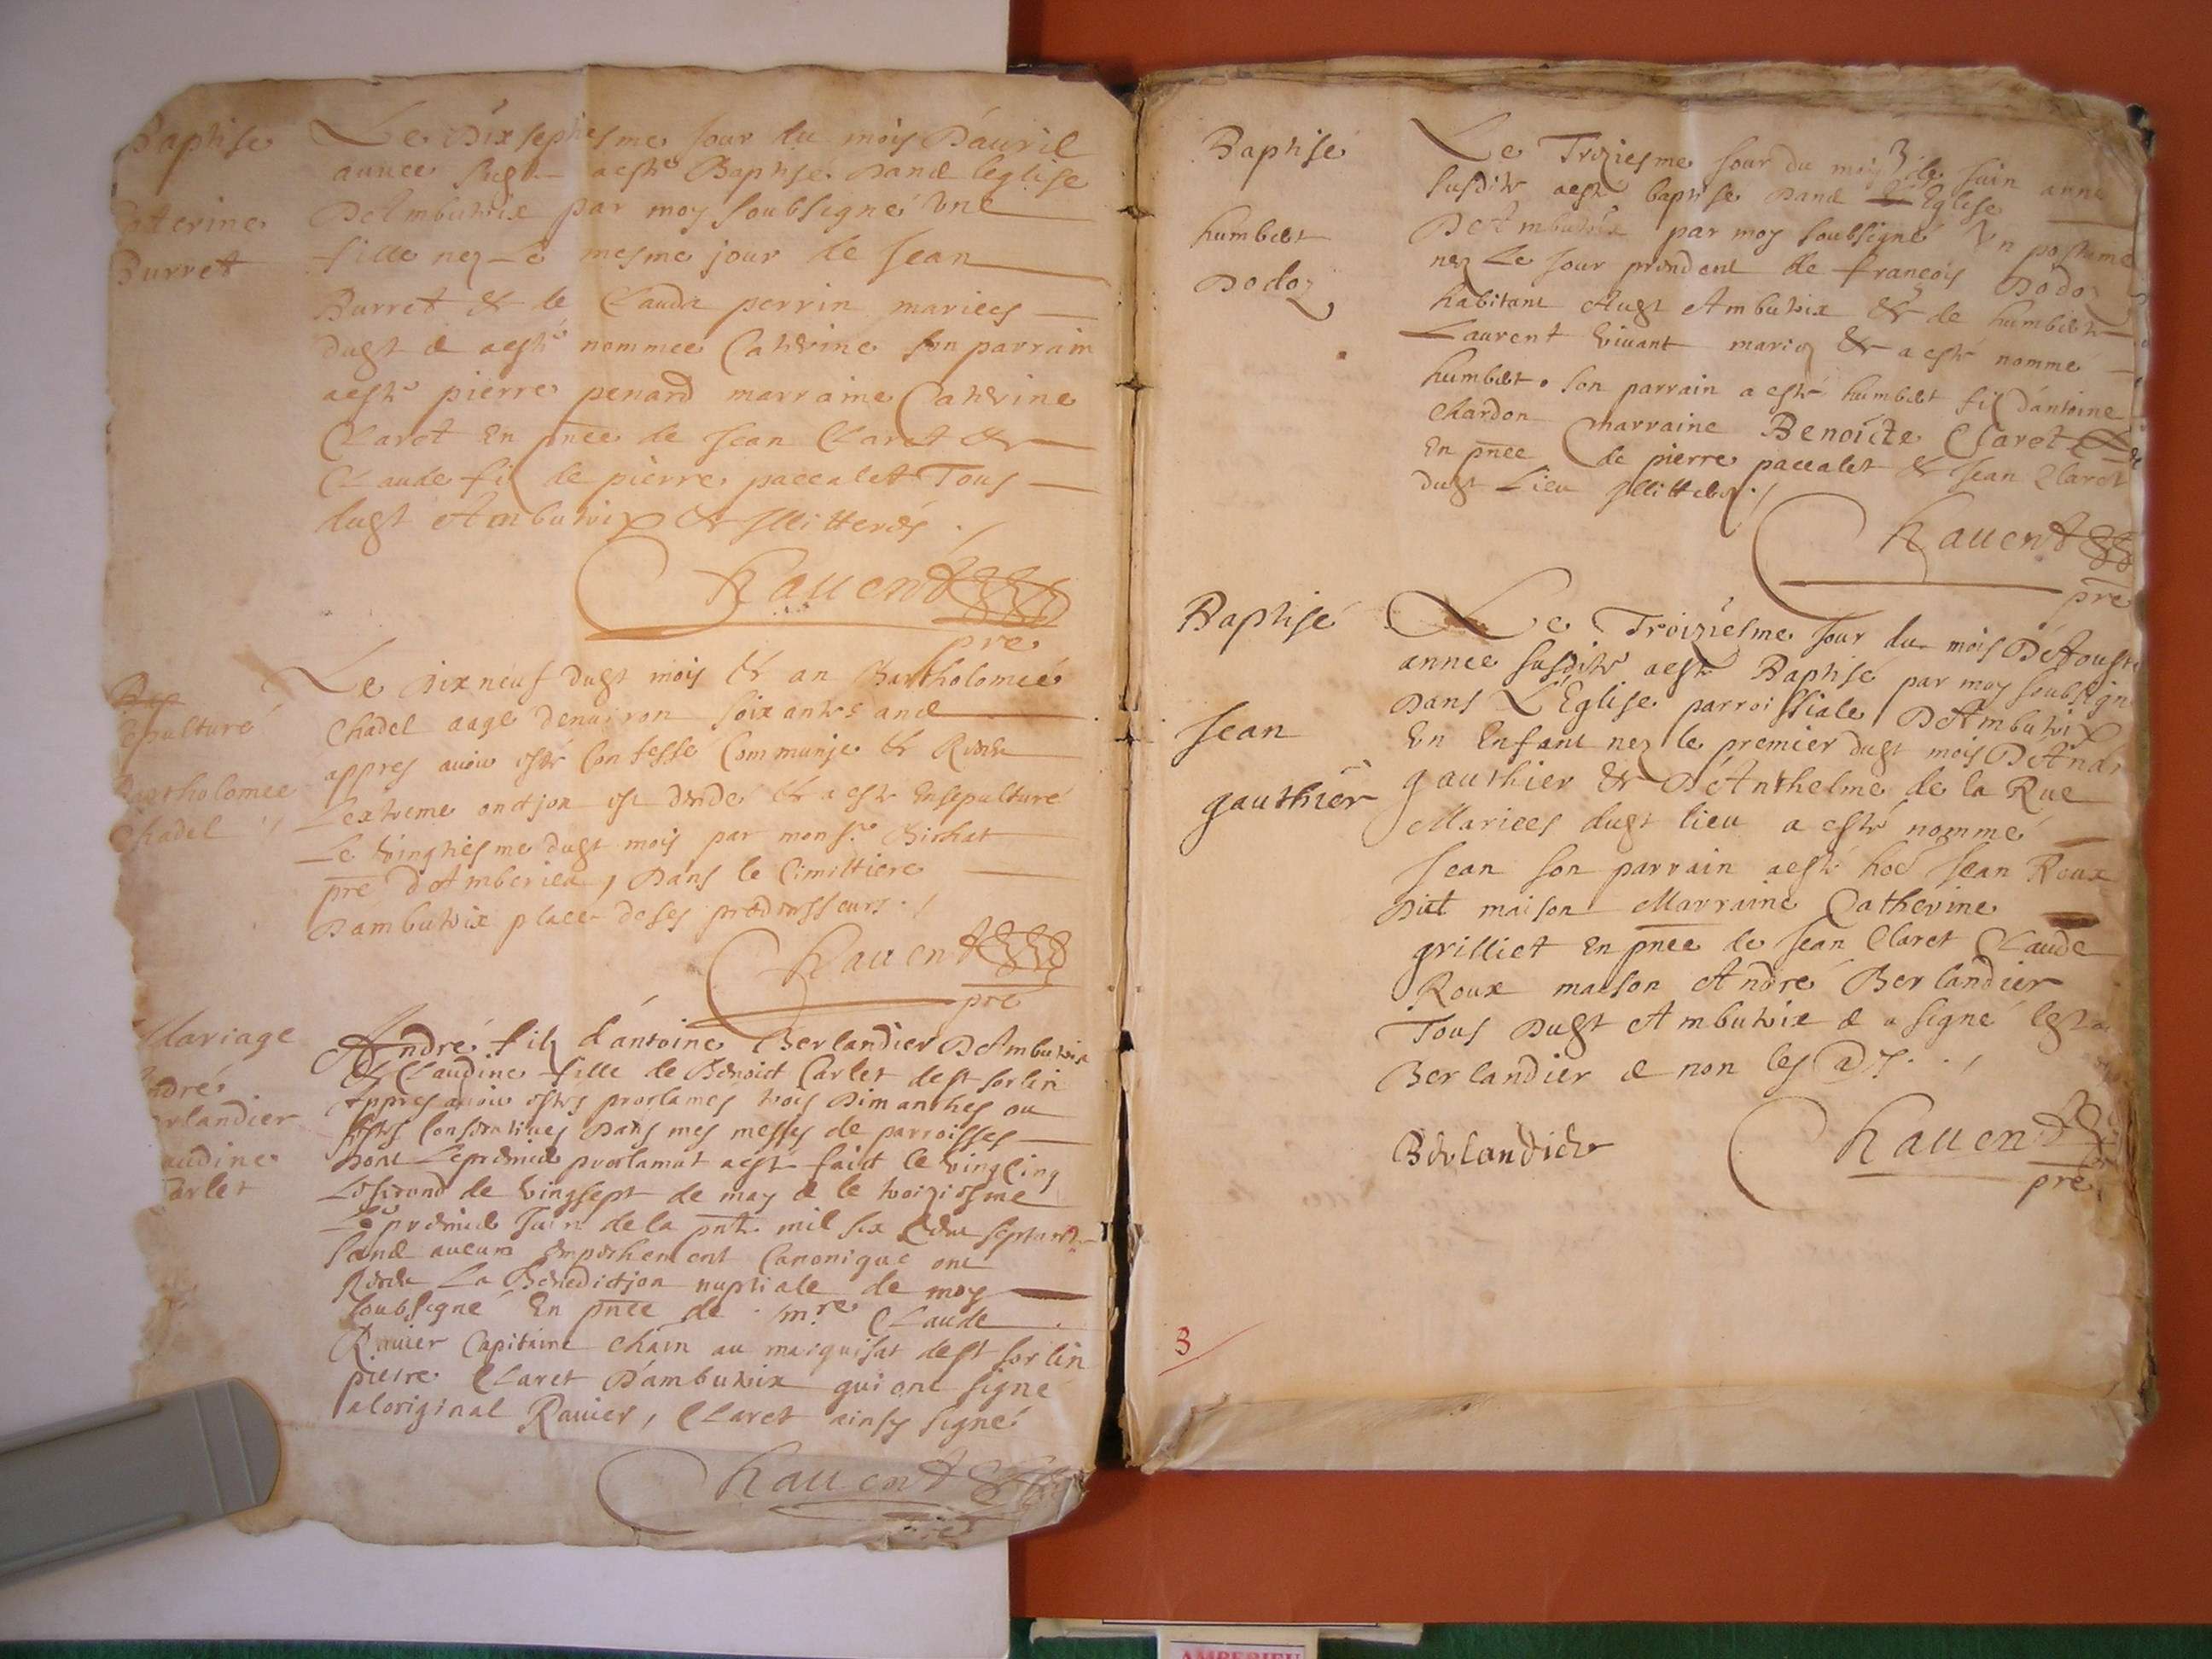 Baptise
Caterine
Burret
Le Dixseptiesme jour du mois D'auril
annee susd. a esté Baptisé Dans leglise
DeAmbutrix par moy soubsigné Vne
fille nez le mesme jour de Jean
Burret & de Clauda perrin mariees
dugt & a esté nommee Catérine son parrain
a esté pierre penard marraine Catérine
Claret En pnce de Jean Claret &
Claude fil de pierre paccalet Tous
dugt Ambutrix & Illitterés ./
Chauent
pre
Bap
Sepulture
Bartholomee
Chadel
Le Dix neuf dugt mois & an Bartholomeé
Chadel aagé denuiron soixante ans
appres auoir esté Confessé Communje & Receu
Lextreme onctjon est decedé & a esté Ensepulturé
Le vingtiesme dugt mois par monsr Bichat
pre d'Amberieu, Dans le Cimittiere
Dambutrix place de ses predecesseurs ./
Chauent
pre
Mariage
André
Berlandier
Claudine
Carlet
André filz d'antoine Berlandier DeAmbutrix
& Claudine fille de Benoict Carlet de st sorlin
Appres auoir estés proclamés trois Dimanches ou
festes Consecutiues Dans mes messes de parroisses
Dont Le premier proclamat a esté faict le vingcinq
Le second de vingsept de may & le troiziesme
Le premier Juin de la pnte mil six Cent septante
sans aucun empechement Canonique ont
Receu La Benedictjon nuptiale de moy
soubsigné En pnce de mre Claude
Rauier Capitaine Chain au marquisat de st sorlin
pierre Claret D'ambutrix qui ont signé
a loriginal Rauier, Claret ainsy signé
Chauent
pre
Baptisé
humbert
Dodoz
Le Troziesme jour du mois de Juin anne
susdite a esté baptisé Dans L'Eglise
DeAmbutrix par moy soubsigné Vn postume
nez Le jour precedent de francois Dodoz
habitant dugt Ambutrix & de humberte
Laurent viuant mariez & a esté nommé
humbert. son parrain a esté humbert fil d'antoine
Chardon marraine Benoicte Claret
En pnce de pierre paccalet & Jean Claret
dugt Lieu Illitterez ./
Chauent
pre
Baptisé
Jean
gauthier
Le Troiziesme jour du mois D'Aoust
annee susdite a esté Baptisé par moy soubsign
Dans L'Eglise parroissiale DeAmbutrix
Vn Enfant nez le premier dugt mois D'And
gauthier & D'Anthelme de la Rue
Mariees dugt lieu a esté nommé
Jean son parrain a esté hoe Jean Roux
Dict maison Marraine Catherine
grilliet En pnce de Jean Claret Claude
Roux maison André Berlandier
Tous Dugt Ambutrix & a signé legt
Berlandier & non les a7. ./
Berlandier
Chauent
pre
3
AMBERIEU